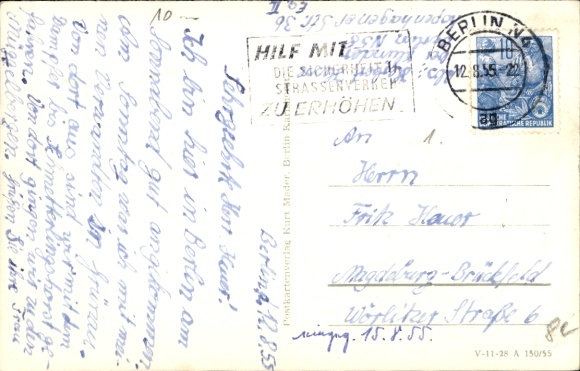 10.-
Berlin, 12.8.55
Sehrgeehrter Herr Hauer!
Ich bin hier in Berlin am
Sonnabend gut angekommen,
am Sonntag war ich mit mei-
nen Verwandten in Grünau.
Von dort aus sind wir mit dem
Dampfer bis Schmetterlingshorst ge-
fahren. Von dort gingen wir zu den
Müggelbergen. Grüßen Sie Ihre Frau
Kopenhagener Str. 36
Berlin N 58
HILF MIT
DIE SICHERHEIT IM
STRASSENVERKEHR
ZU ERHÖHEN
BERLIN N4
12.8.55.-22
ag
DEUTSCHE
DEMOKRATISCHE REPUBLIK
An 1.
Herrn
Fritz Hauer
Magdeburg-Brückfeld
Wörlitzer Straße 6
eingeg. 15.8.55.
Postkartenverlag Kurt Mader, Berlin-
V-11-28 A 150/55